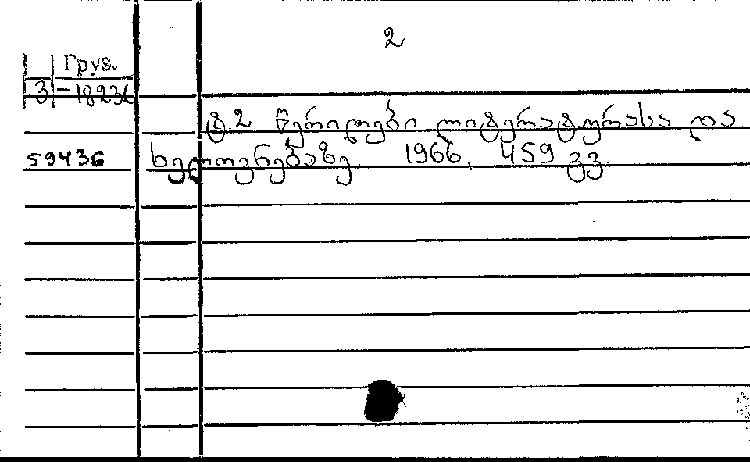 2
Груз.
3 -18236
ტ.2 წერილები ლიტერატურასა და
59436 ხელოვნებაზე. 1966. 459 გვ.